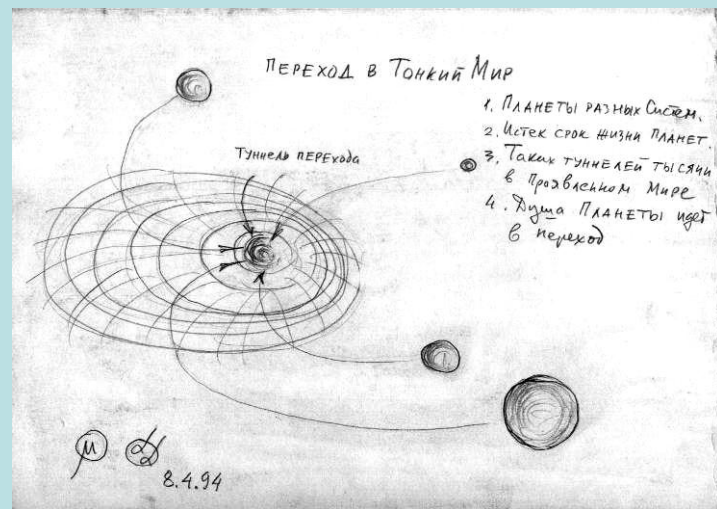 ПЕРЕХОД В ТОНКИЙ МИР
1. ПЛАНЕТЫ РАЗНЫХ СИСТЕМ.
2. ИСТЕК СРОК ЖИЗНИ ПЛАНЕТ.
3. ТАКИХ ТУННЕЛЕЙ ТЫСЯЧИ
В ПРОЯВЛЕННОМ МИРЕ
4. ДУША ПЛАНЕТЫ ИДЕТ
В ПЕРЕХОД
ТУННЕЛЬ ПЕРЕХОДА
8.4.94